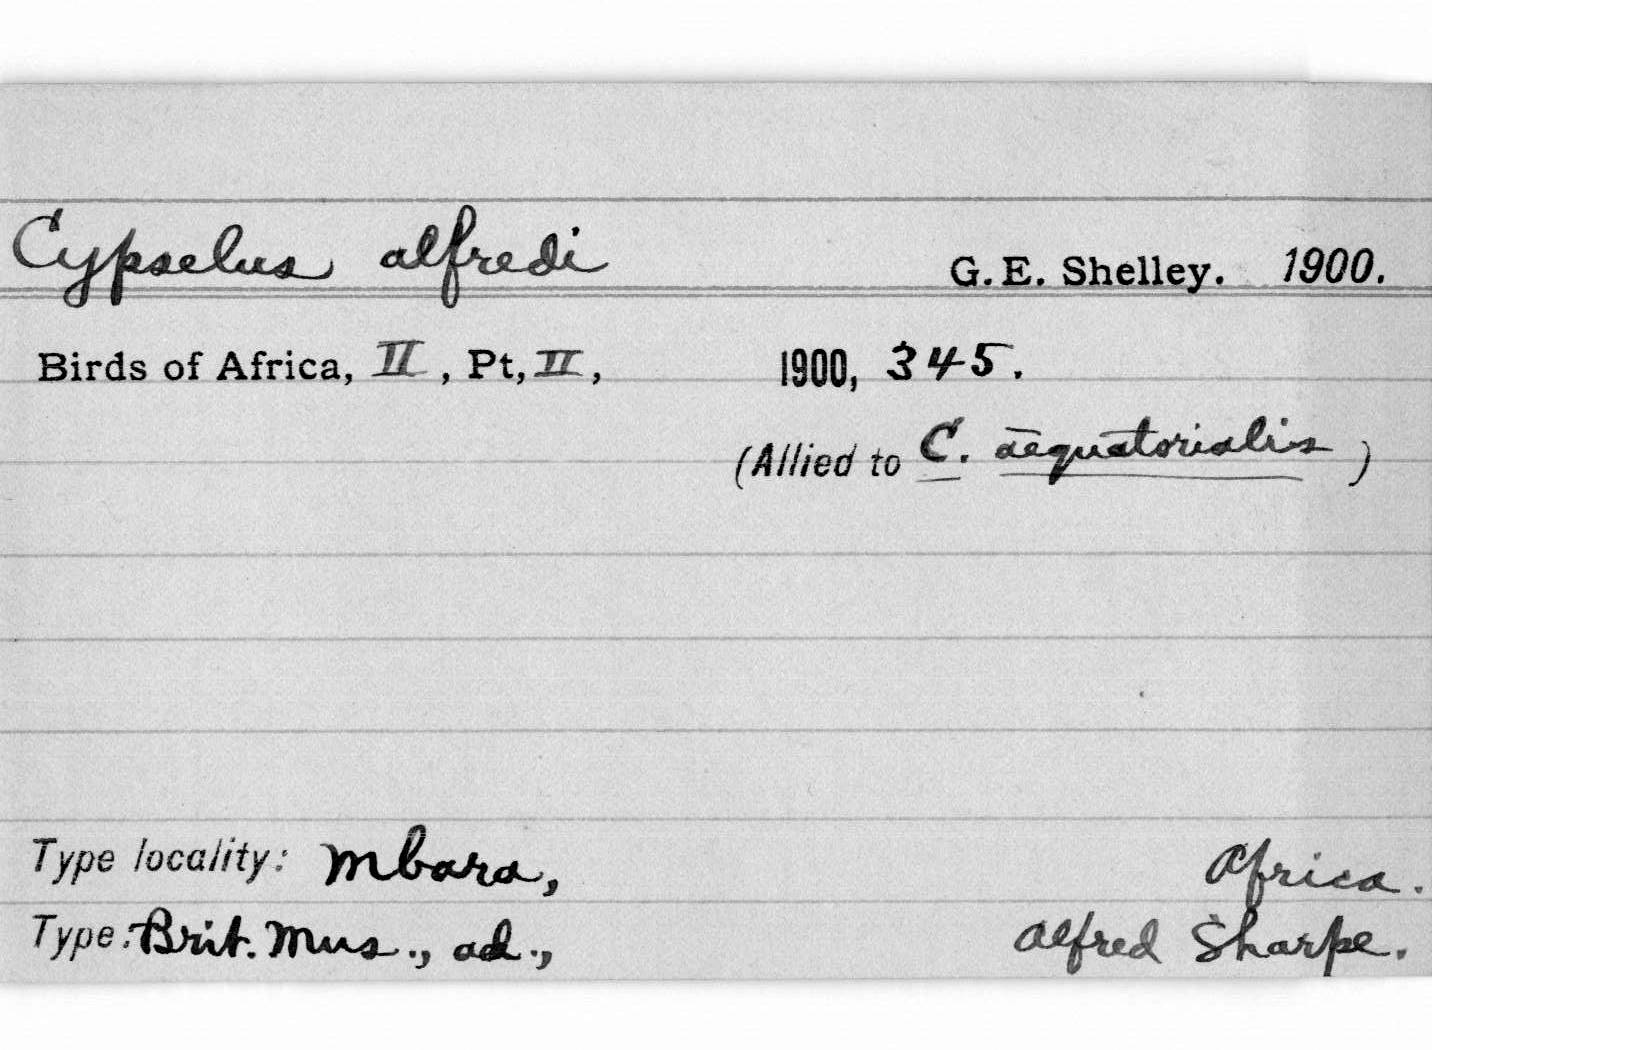 Cypselus alfredi G.E. Shelley. 1900.
Birds of Africa, II, Pt, II, 1900, 345.
(Allied to C. aequatorialis)
Type locality: Mbara, Africa.
Type: Brit. Mus., ad., Alfred Sharpe.